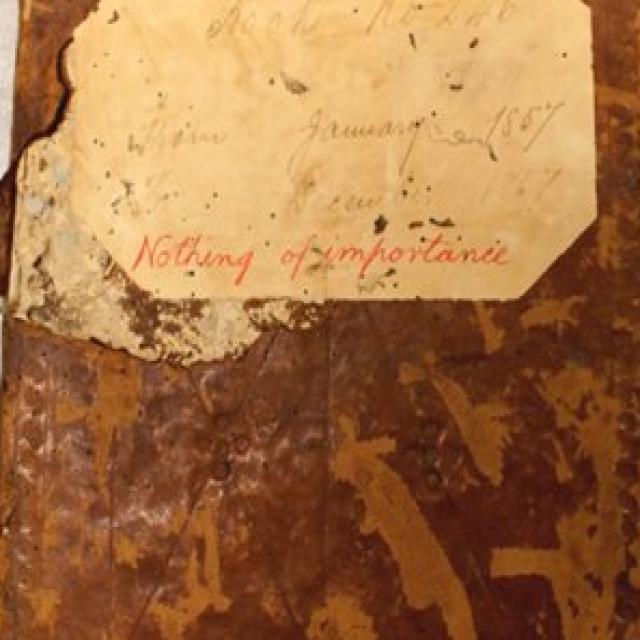 Book No
From January 1857
December 1857
Nothing of importance